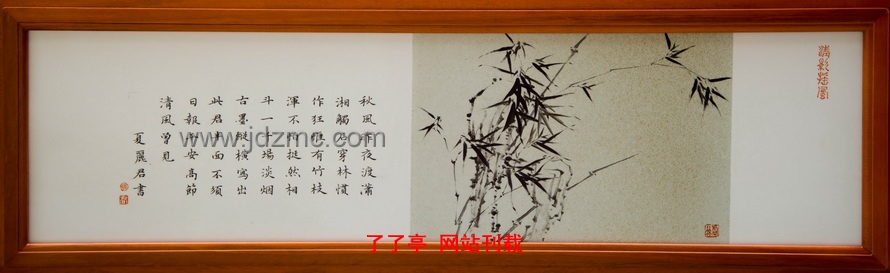 秋風昨夜渡瀟
湘觸石穿林慣
作狂惟有竹枝
渾不怕挺然相
斗一千場淡烟
古墨縱橫寫出
此君半面不須
日報平安高節
清風曾見
夏麗君書
www.jdzmc.com
了了亭 网站刊载